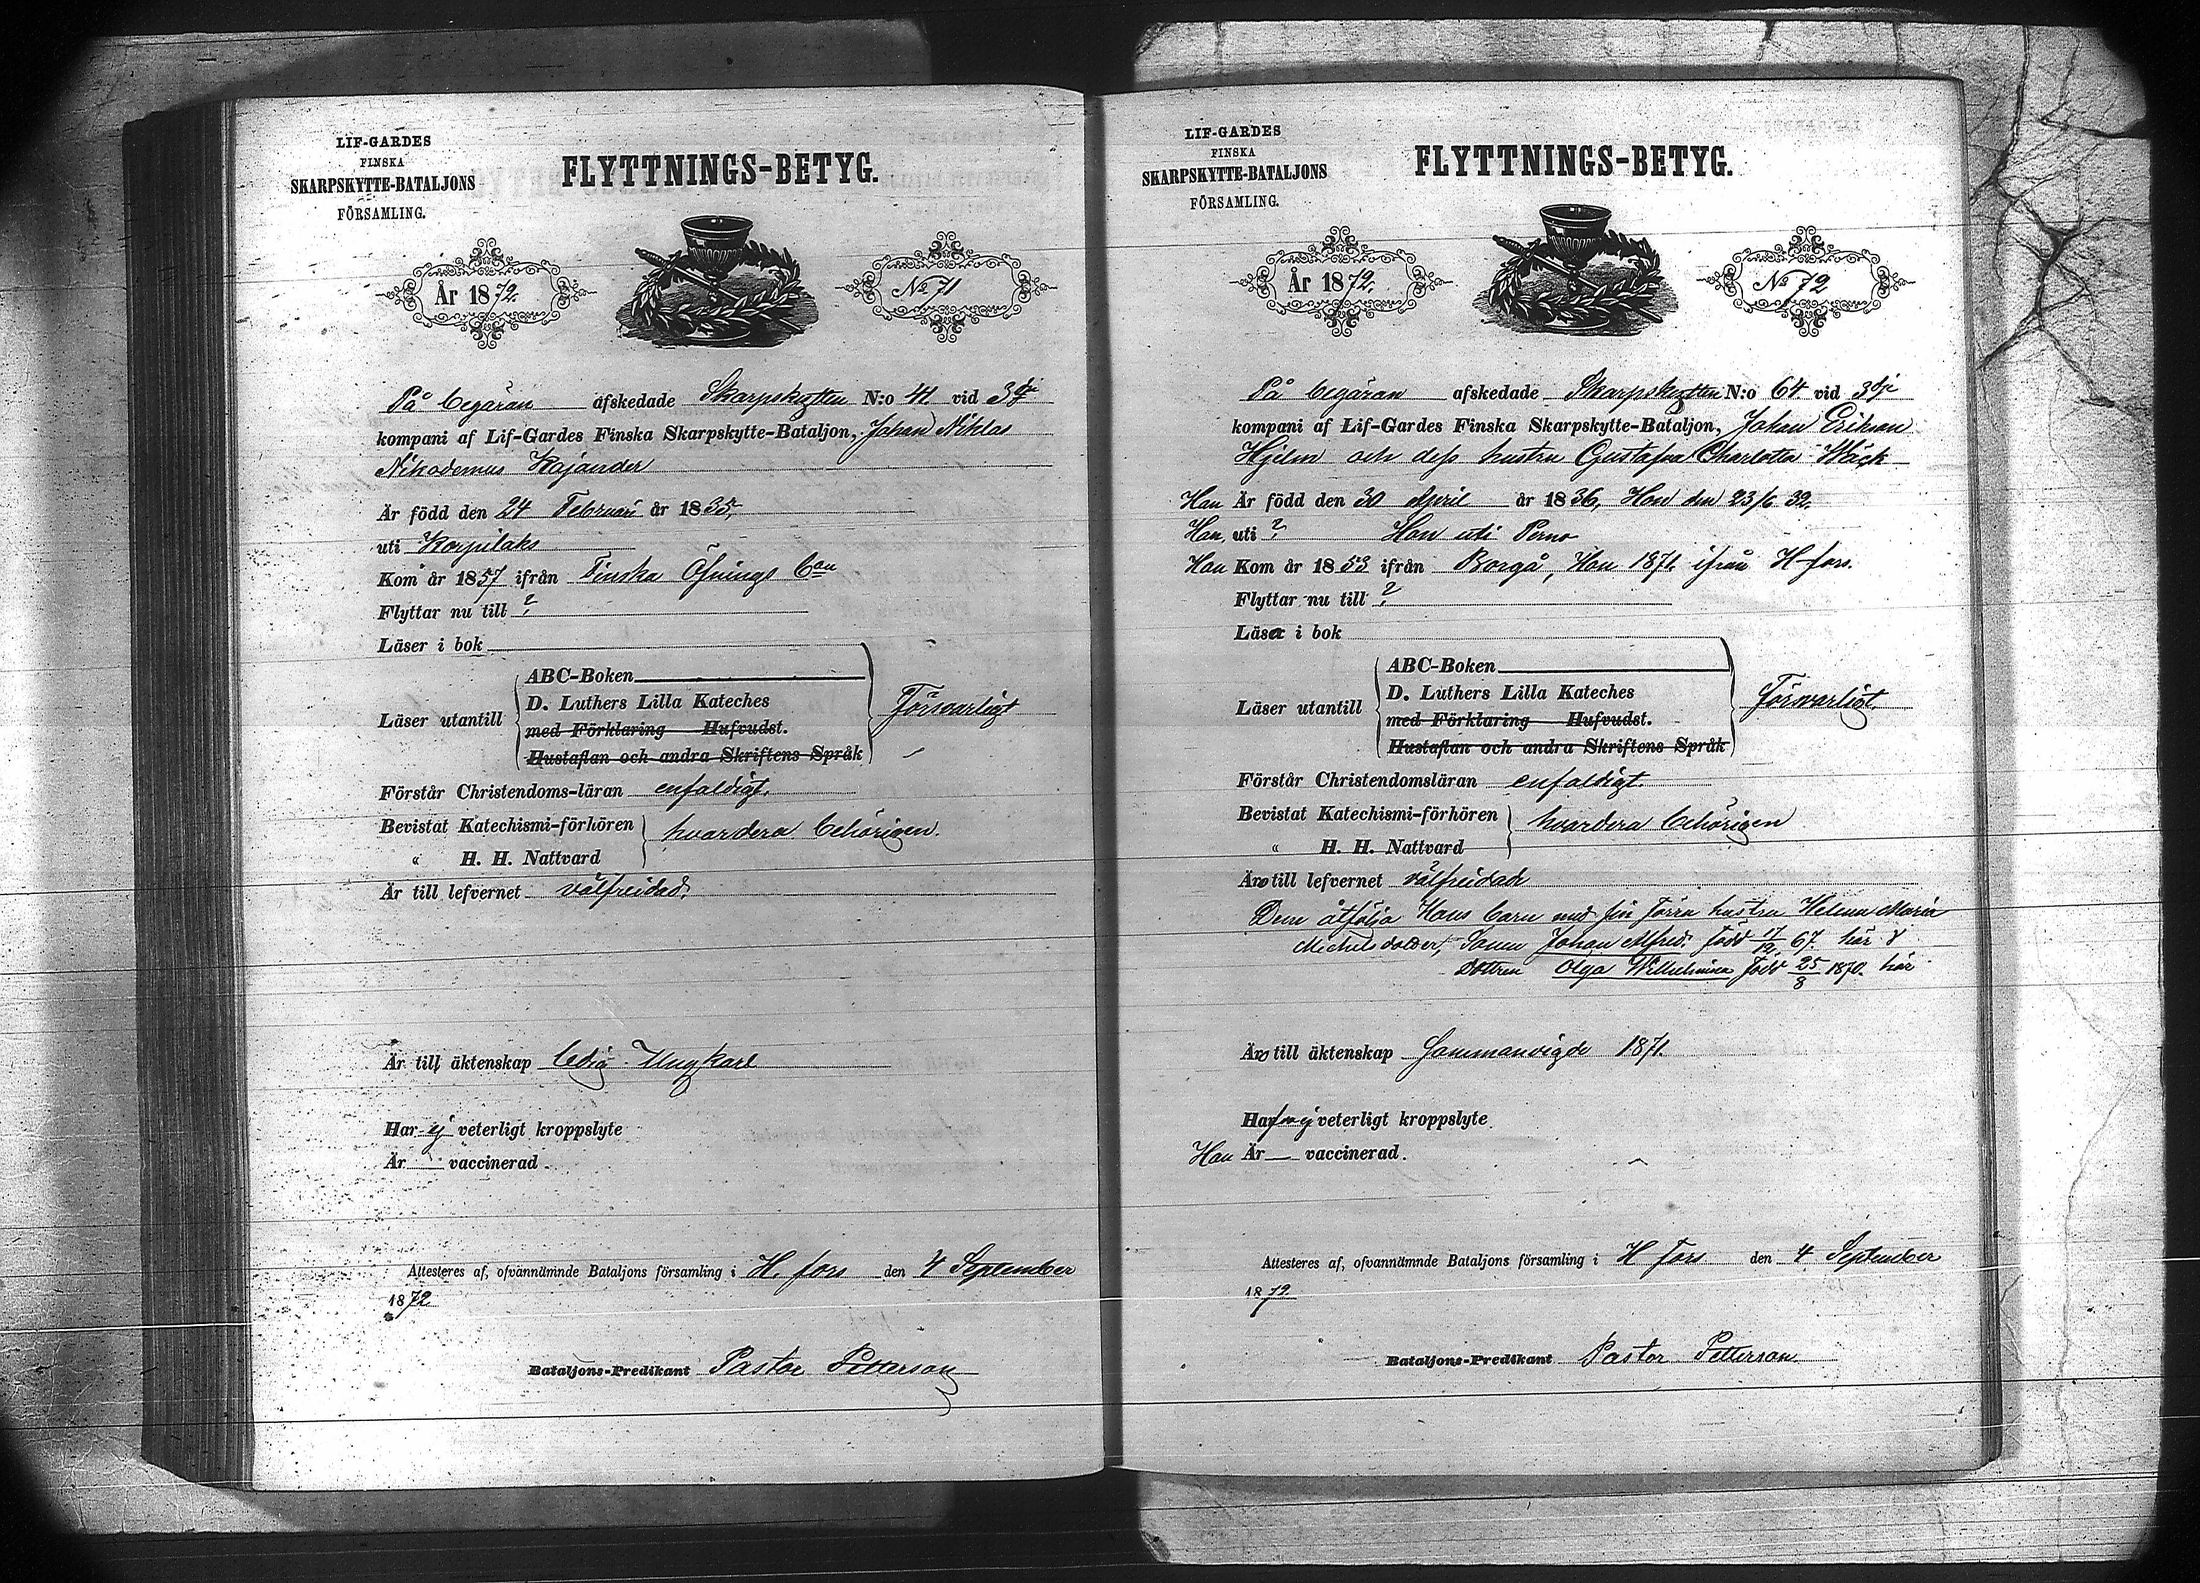 LIF-GARDES
FINSKA
SKARPSKYTTE-BATALJONS
FÖRSAMLING.
FLYTTNINGS-BETYG.
År 1872.
No 71
På begäran afskedade Skarpskytten N:o 41. vid 3dje
kompani af Lif-Gardes Finska Skarpskytte-Bataljon, Johan Niklas
Nikodemus Kajander
Är född den 24 Februari år 1835,
uti Korpilaks
Kom år 1857 ifrån Finska Öfnings Ban
Flyttar nu till ?
Läser i bok
ABC-Boken
D. Luthers Lilla Kateches
Läser utantill
med Förklaring Hufvudst.
Hustaflan och andra Skriftens Språk
Försvarligt
Förstår Christendoms-läran enfaldigt.
Bevistat Katechismi-förhören
hvardera behörigen.
" H. H. Nattvard
Är till lefvernet välfreidad.
Är till äktenskap ledig Ungkarl
Har ej veterligt kroppslyte
Är — vaccinerad.
Attesteres af, ofvannämnde Bataljons församling i H. fors den 4 September
1872
Bataljons-Predikant Pastor Petterson
LIF-GARDES
FINSKA
SKARPSKYTTE-BATALJONS
FÖRSAMLING.
FLYTTNINGS-BETYG.
År 1872.
No 72
På begäran afskedade Skarpskytten N:o 64 vid 3dje
kompani af Lif-Gardes Finska Skarpskytte-Bataljon, Johan Erikson
Hjelm och dess hustru Gustafva Charlotta
Han Är född den 30 April år 1836, Hon den 23/6 32.
Han uti ? Hon uti Perno
Han Kom år 1853 ifrån Borgå, Hon 1871. ifrån H-fors.
Flyttar nu till ?
Läsa i bok
ABC-Boken
D. Luthers Lilla Kateches
Läser utantill
med Förklaring Hufvudst.
Hustaflan och andra Skriftens Språk
Försvarligt.
Förstår Christendomsläran enfaldigt.
Bevistat Katechismi-förhören
hvardera behörigen
" H. H. Nattvard
Äro till lefvernet välfreidade
Dem åtfölja Hans barn med sin förra hustru Helena Maria
Michelsdotter, Sonen Johan Alfred. född 17/12 67. här &
Dottren Olga Wilhelmina född 25/8 1870. här
Äro till äktenskap Sammanvigde 1871.
Hafva ej veterligt kroppslyte
Han Är — vaccinerad.
Attesteres af, ofvannämnde Bataljons församling i H fors den 4 September
1872
Bataljons-Predikant Pastor Petterson.